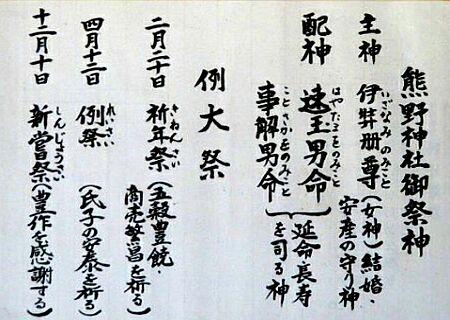 熊野神社御祭神
主神 伊弉册尊(女神)結婚・
いざなみのみこと
安産の守り神
配神 速玉男命
はやたまをのみこと
事解男命
ことさかをのみこと
延命・長寿
を司る神
例大祭
二月二十日 祈年祭(五穀豊饒・
きねんさい
商売繁昌を祈る)
四月十二日 例祭(氏子の安泰を祈る)
れいさい
十二月十日 新嘗祭(豊作を感謝する)
しんじょうさい